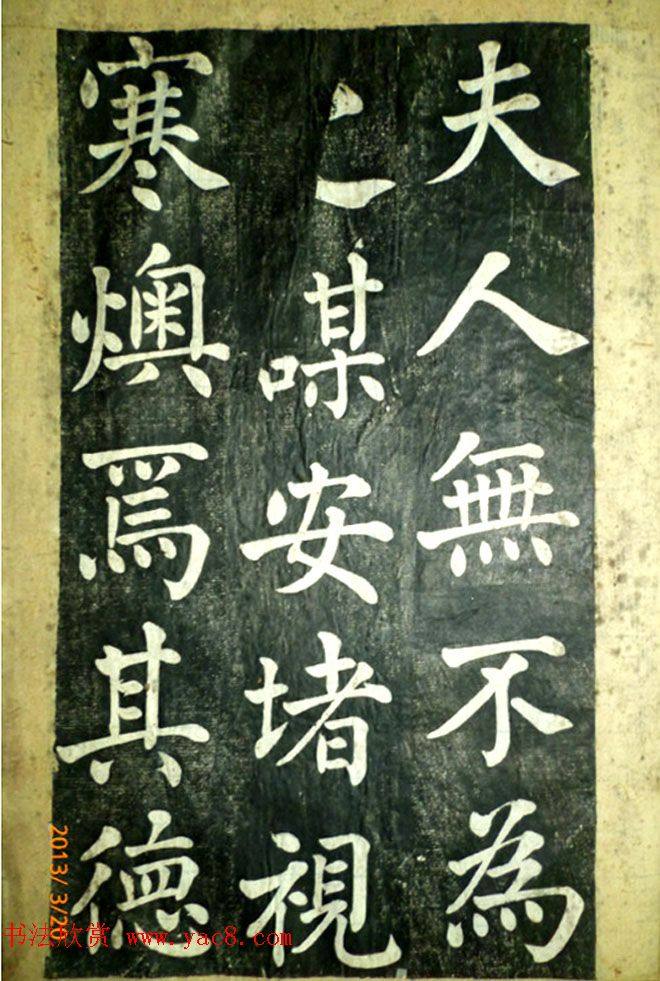 夫人無不為
之謀安堵視
寒燠焉其德
书法欣赏 www.yac8.com